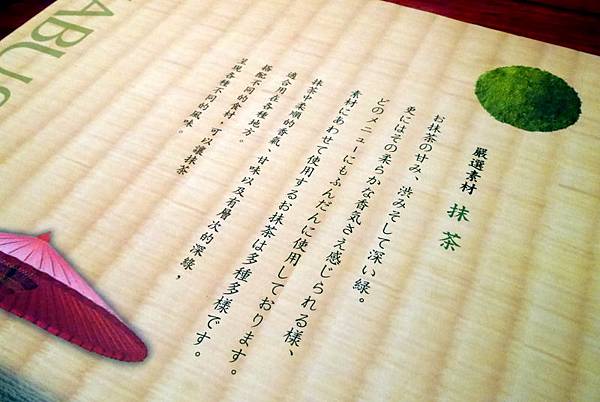 嚴選素材 抹茶
お抹茶の甘み、渋みそして深い緑。
更にはその柔らかな香気さえ感じられる様、
どのメニューにもふんだんに使用しております。
素材にあわせて使用するお抹茶は多種多様です。
抹茶中柔順的香氣、甘味以及有層次的深綠，
適合用在各種地方。
搭配不同的食材，可以讓抹茶
呈現各種不同的風味。